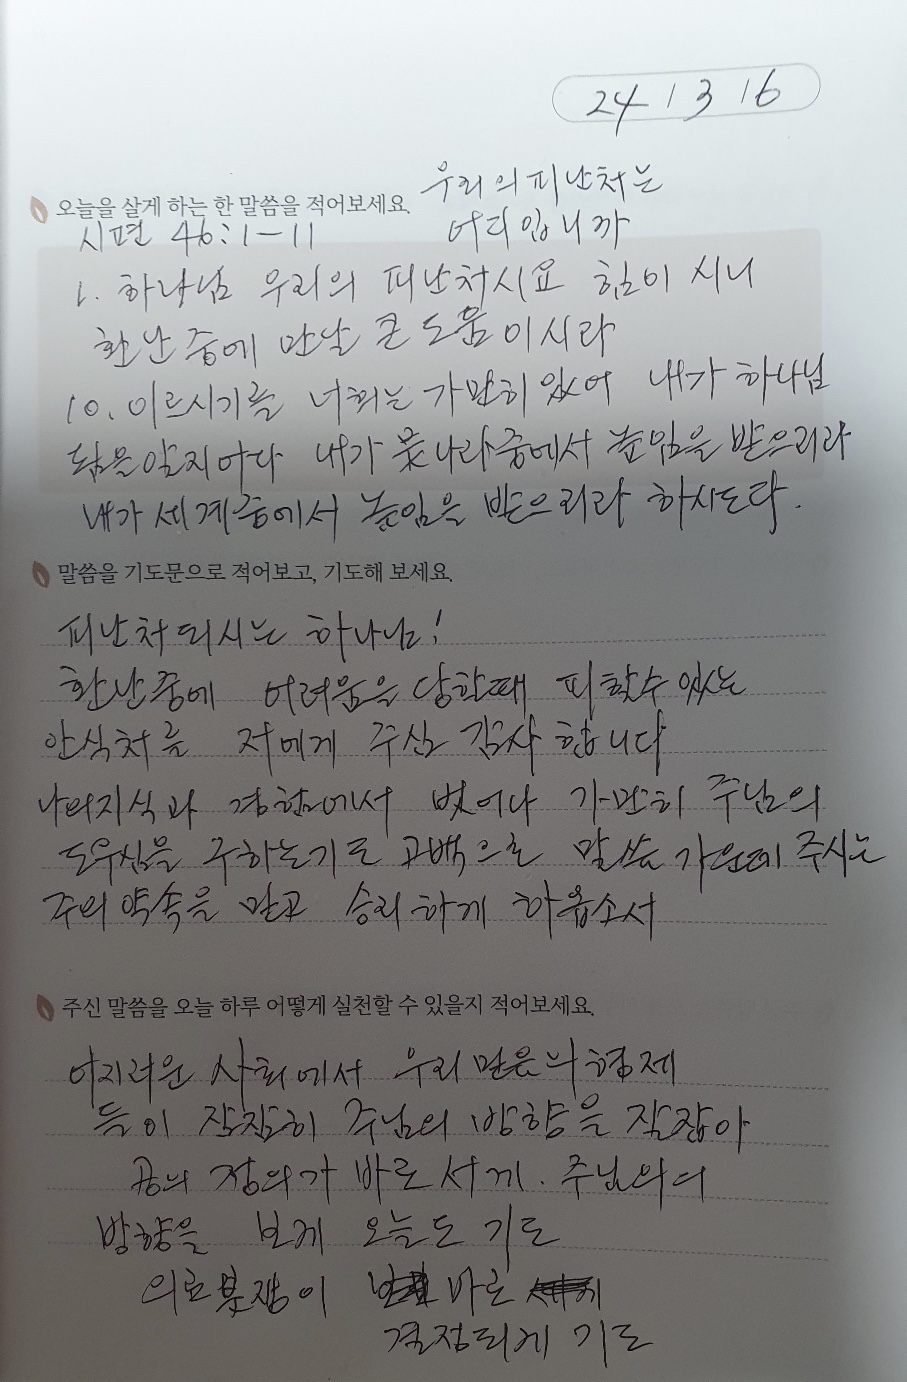 24 / 3 / 16
우리의 피난처는
오늘을 살게 하는 한 말씀을 적어보세요.
어디입니까
시편 46:1-11
1. 하나님 우리의 피난처시요 힘이 시니
환난 중에 만날 큰 도움이시라
10. 이르시기를 너희는 가만히 있어 내가 하나님
됨을 알지어다 내가 뭇나라중에서 높임을 받으리라
내가 세계중에서 높임을 받으리라 하시도다.
말씀을 기도문으로 적어보고, 기도해 보세요.
피난처 되시는 하나님!
환난중에 어려움을 당할때 피할수 있는
안식처를 저에게 주심 감사 합니다
나의지식과 경험에서 벗어나 가만히 주님의
도우심을 구하는기도 고백으로 말씀 가운데 주시는
주의 약속을 믿고 승리하게 하옵소서
주신 말씀을 오늘 하루 어떻게 실천할 수 있을지 적어보세요.
어지러운 사회에서 우리 믿음의 형제
들이 잠잠히 주님의 방향을 잘잡아
공의 정의가 바로 서게. 주님의
방향을 보게 오늘도 기도
의료 분쟁이 바로
결정되게 기도